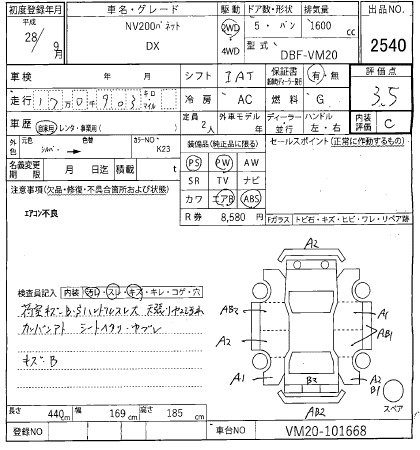 初度登録年月 車名・グレード 駆動 ドア数・形状 排気量 出品NO.
平成 28年 9月 NV200バネット DX 2WD 4WD 5・バン 1600cc 2540
型式 DBF-VM20
車検 年 月 シフト IAT 保証書 有・無 評価点
走行 キロ マイル 冷房 AC 燃料 G 3.5
車歴 自家用 レンタ・事業用( ) 定員 2人 外車モデル 年 ディーラー・並行 ハンドル 左・右 内装評価 C
外色 元色 シルバー → 色替 カラーNO K23
装備品(純正品に限る) セールスポイント(正常に作動するもの)
名義変更期限 月 日迄 積載 t
PS PW AW
SR TV ナビ
カワ エアB ABS
R券 8,580円
Fガラス トビ石・キズ・ヒビ・ワレ・リペア跡
注意事項(欠品・修復・不良合箇所および状態)
エアコン不良
検査員記入 内装 汚れ・スレ・キズ・キレ・コゲ・穴
カンバンアト シートイタミ
キズ・B
A2
AB2 A1
A2 AB1
A1 B2 A2 B1
AB2
スペア
長さ 440cm 幅 169cm 高さ 185cm
登録NO 車台NO VM20-101668